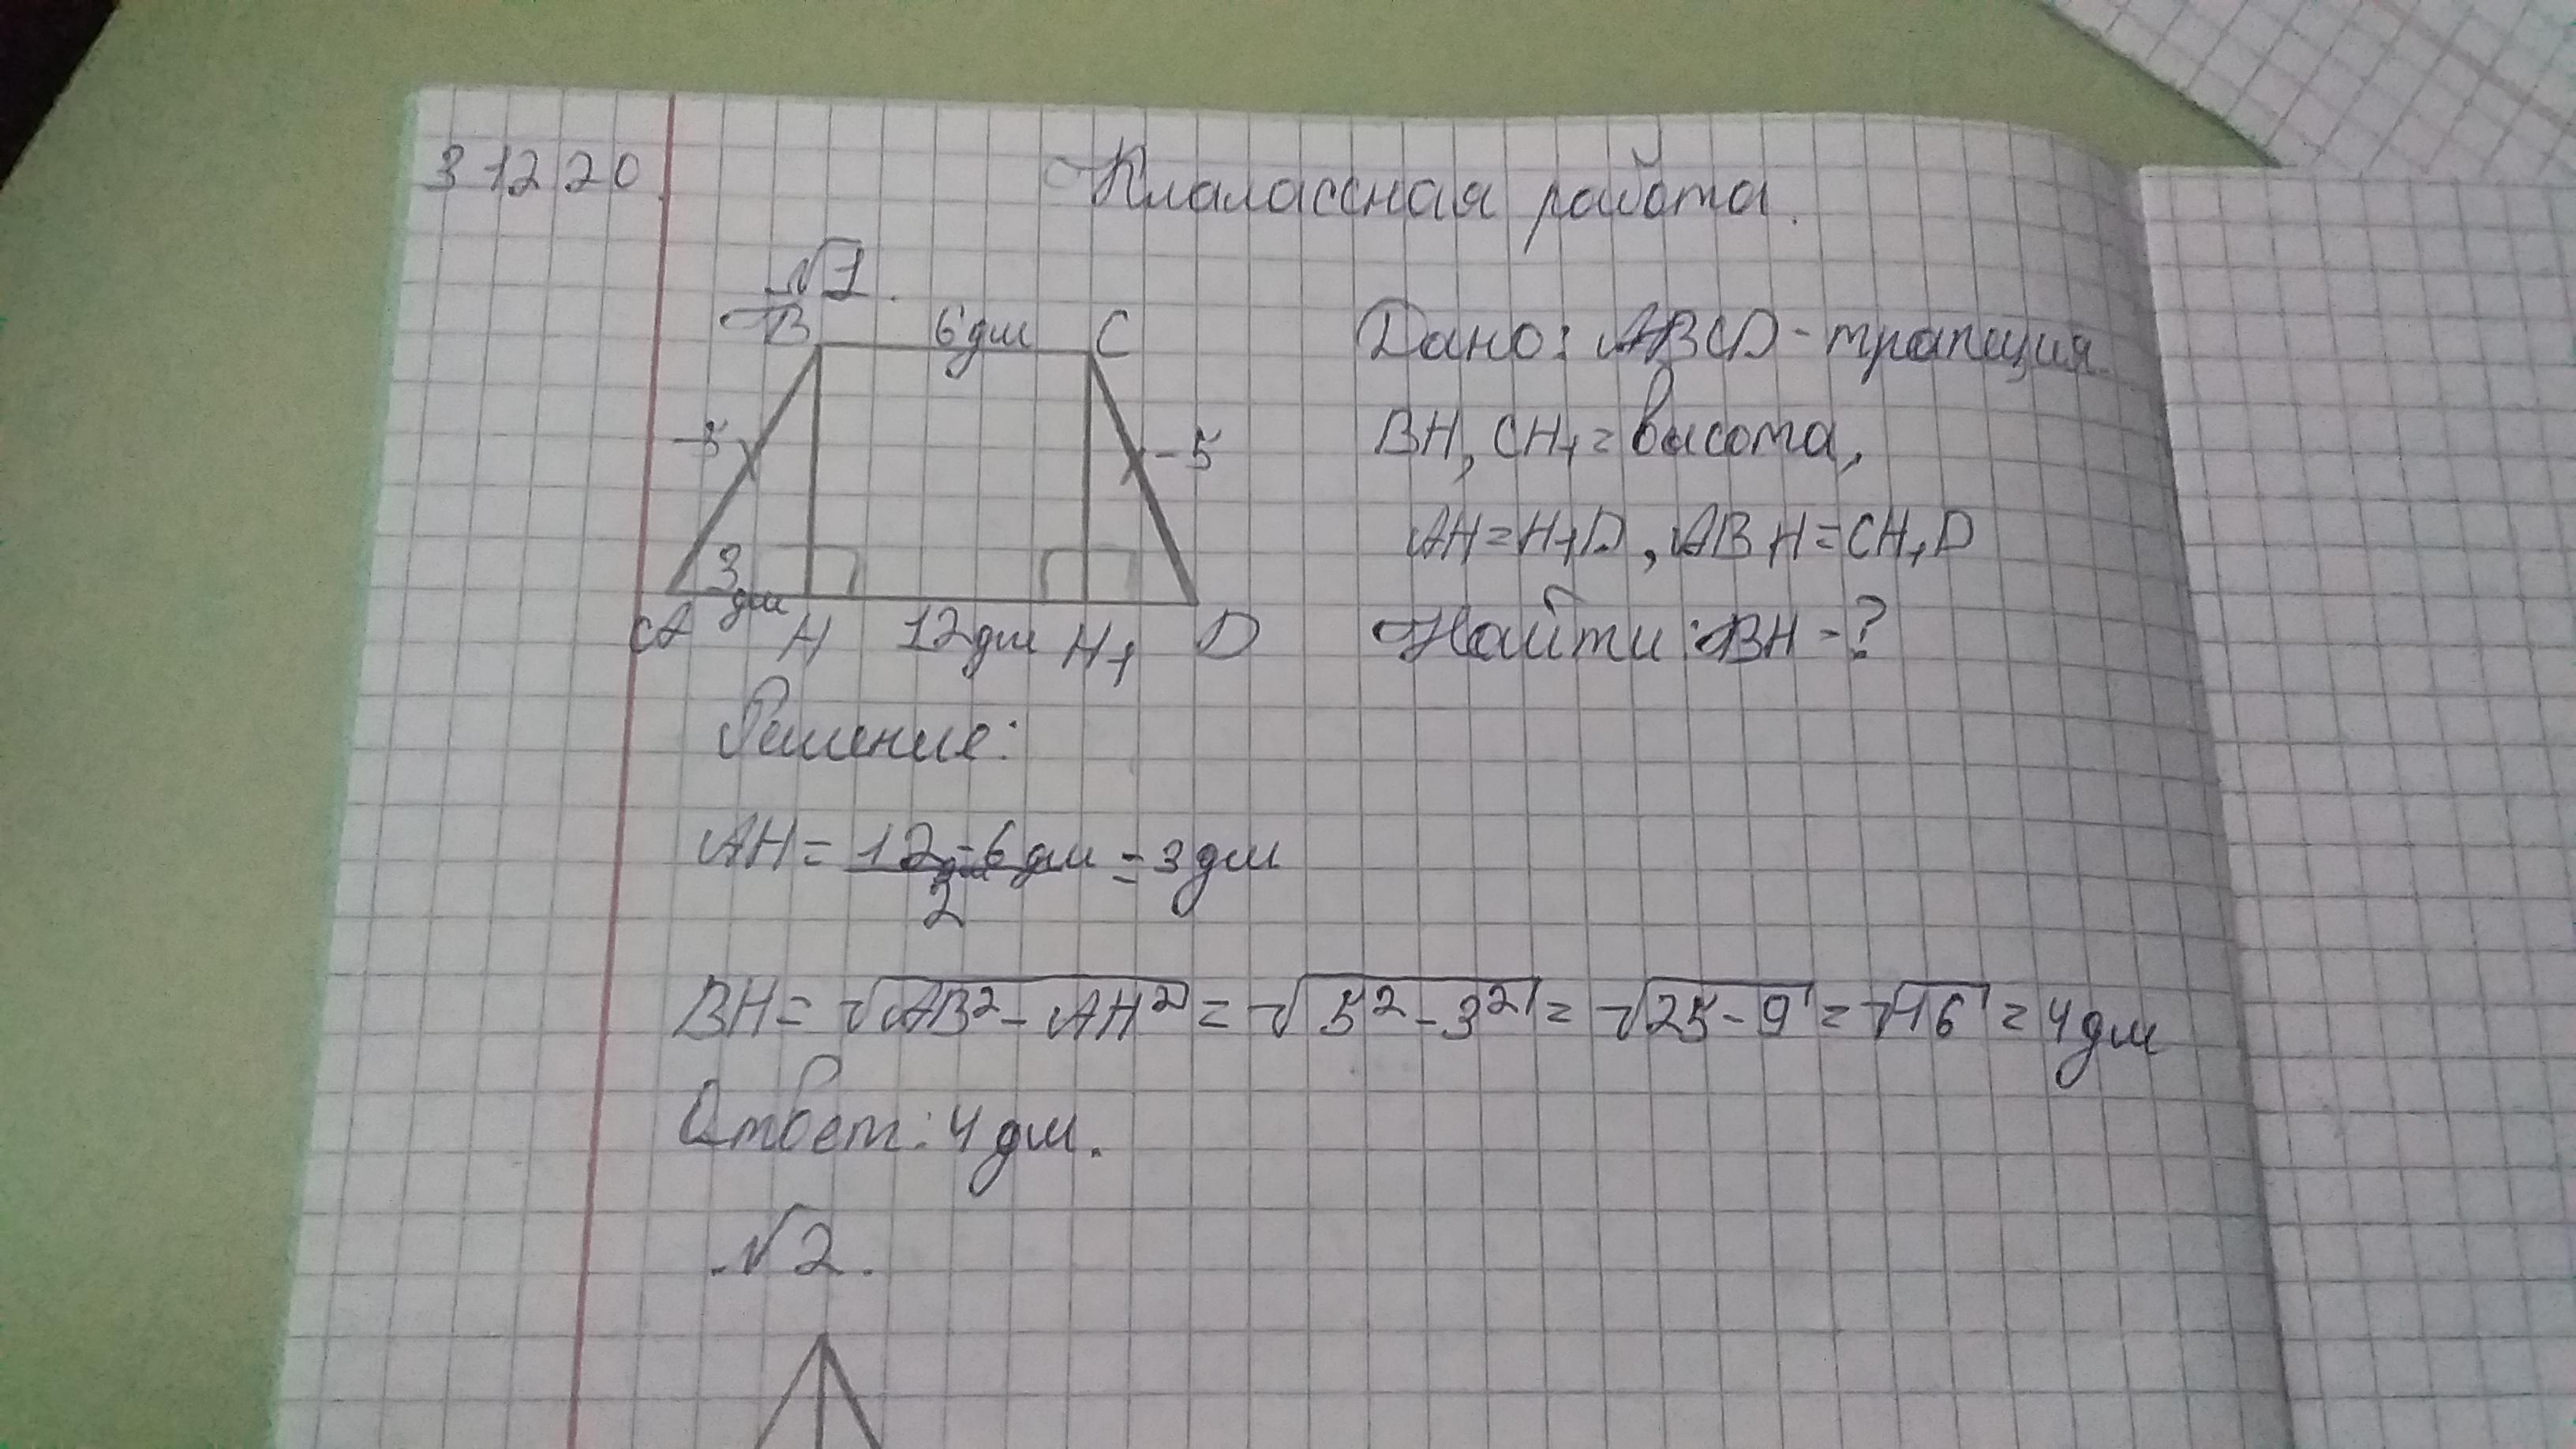 3 12 20
Клалассная работа.
№1.
B 6 дм C
5 5
3 дм
A H 12 дм H₁ D
Дано: ABCD - трапиция.
BH, CH₁ = высота,
AH = H₁D, ABH = CH₁D
Найти: BH - ?
Решение:
AH = (12 дм - 6 дм)/2 = 3 дм
BH = √(AB² - AH²) = √(5² - 3²) = √(25 - 9) = √16 = 4 дм
Ответ: 4 дм.
№2.